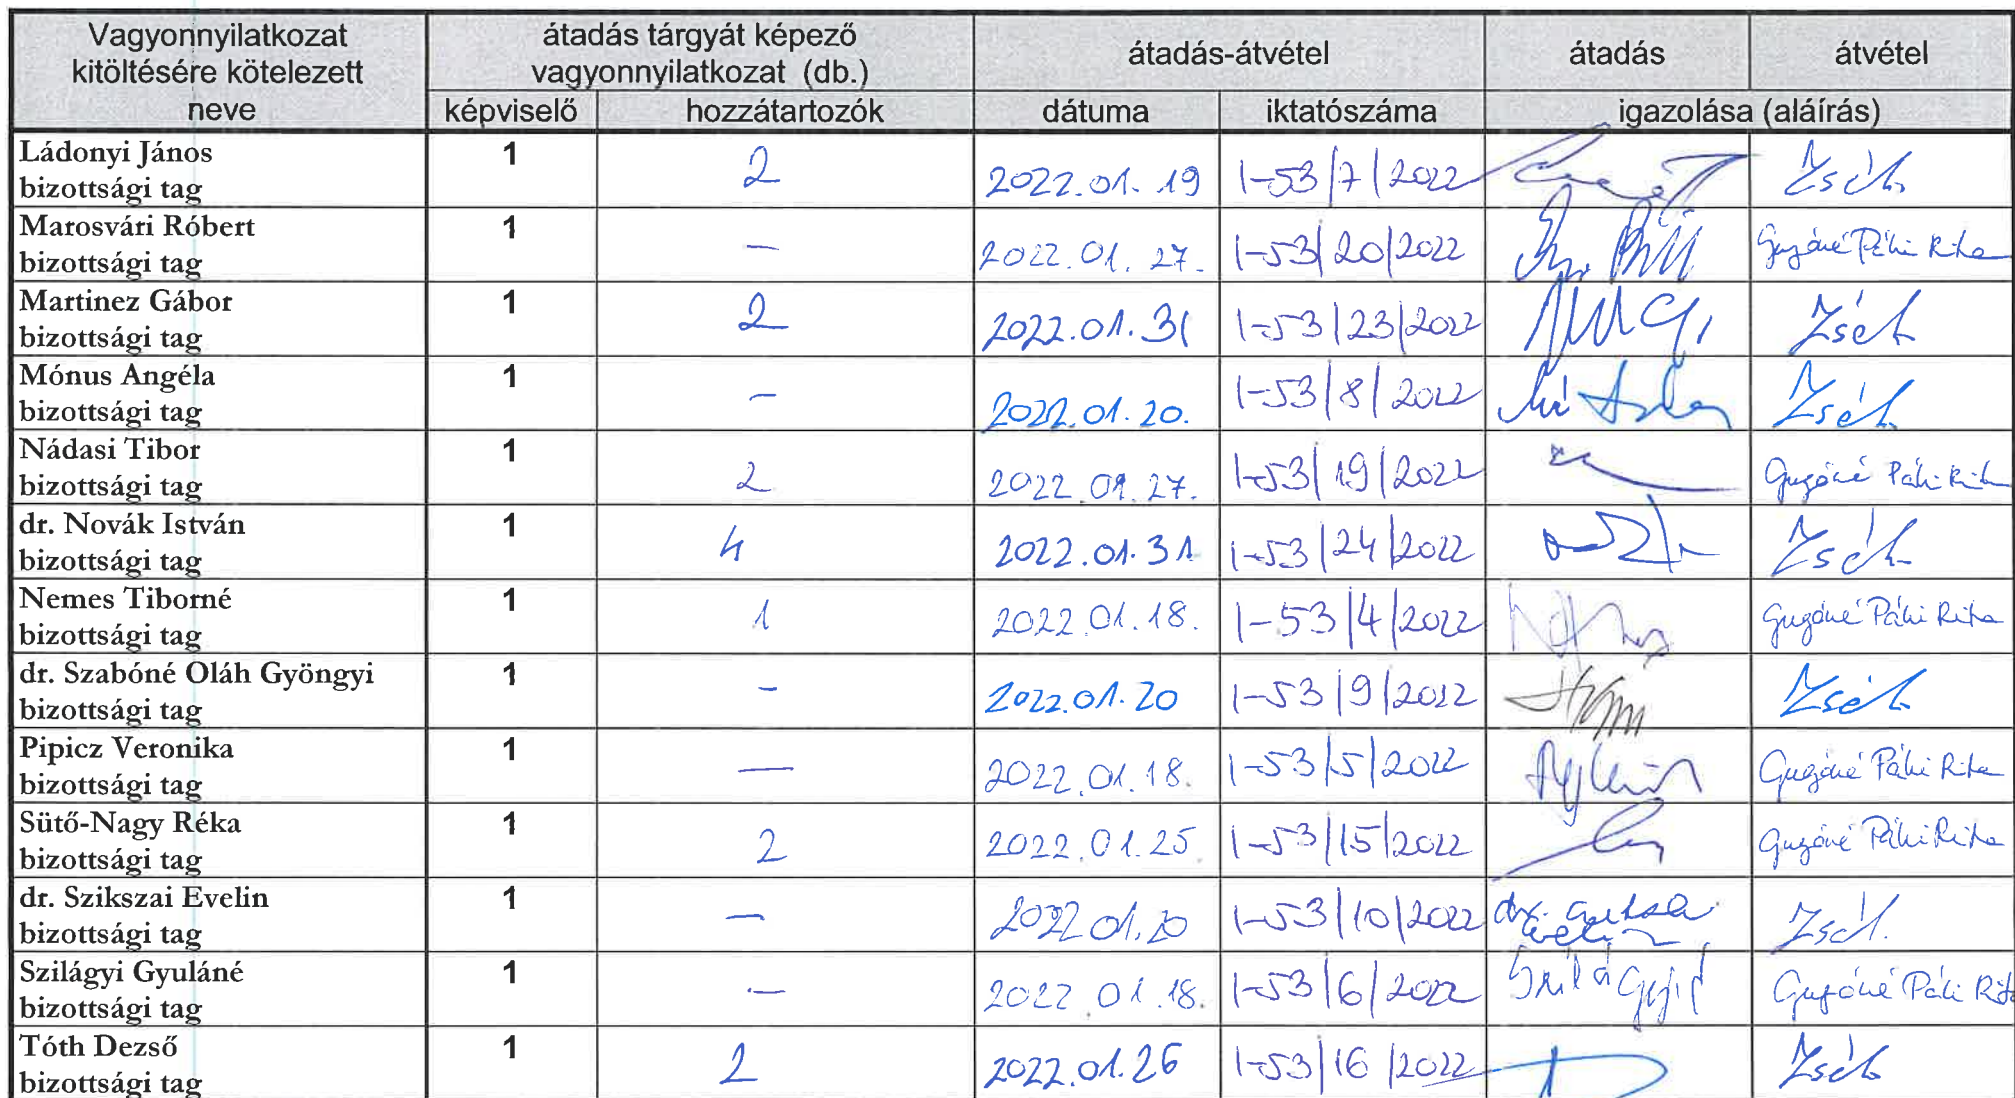 Vagyonnyilatkozat kitöltésére kötelezett neve | átadás tárgyát képező vagyonnyilatkozat (db.) | átadás-átvétel | átadás | átvétel
képviselő | hozzátartozók | dátuma | iktatószáma | igazolása (aláírás)
Ládonyi János
bizottsági tag | 1 | 2 | 2022.01.19 | 1-53/7/2022
Marosvári Róbert
bizottsági tag | 1 | — | 2022.01.27. | 1-53/20/2022 | Gugóné Páhi Rita
Martinez Gábor
bizottsági tag | 1 | 2 | 2022.01.31 | 1-53/23/2022
Mónus Angéla
bizottsági tag | 1 | — | 2022.01.20. | 1-53/8/2022
Nádasi Tibor
bizottsági tag | 1 | 2 | 2022.01.27. | 1-53/19/2022 | Gugóné Páhi Rita
dr. Novák István
bizottsági tag | 1 | 4 | 2022.01.31 | 1-53/24/2022
Nemes Tiborné
bizottsági tag | 1 | 1 | 2022.01.18. | 1-53/4/2022 | Gugóné Páhi Rita
dr. Szabóné Oláh Gyöngyi
bizottsági tag | 1 | - | 2022.01.20 | 1-53/9/2022
Pipicz Veronika
bizottsági tag | 1 | — | 2022.01.18. | 1-53/5/2022 | Gugóné Páhi Rita
Sütő-Nagy Réka
bizottsági tag | 1 | 2 | 2022.01.25. | 1-53/15/2022 | Gugóné Páhi Rita
dr. Szikszai Evelin
bizottsági tag | 1 | — | 2022.01.20 | 1-53/10/2022
Szilágyi Gyuláné
bizottsági tag | 1 | — | 2022.01.18. | 1-53/6/2022 | Gugóné Páhi Rita
Tóth Dezső
bizottsági tag | 1 | 2 | 2022.01.26 | 1-53/16/2022